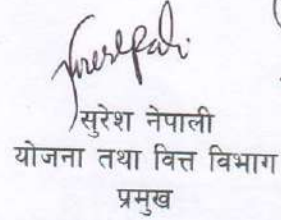 सुरेश नेपाली
योजना तथा वित्त विभाग
प्रमुख